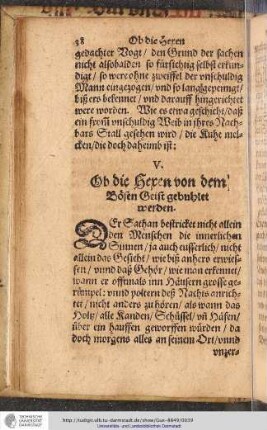 38 Ob die Hexen
gedachter Vogt / den Grund der sachen
nicht alsobalden so fürsichtig selbst erkun-
digt / so were ohne zweiffel der vnschuldig
Mann eingezogen / vnd so lang gepeinigt /
biß ers bekennet / vnd darauff hingerichtet
were worden. Wie es etwa geschicht / daß
ein from̃ vnschuldig Weib in ihres Nach-
bars Stall gesehen wird / die Kühe mel-
cken / die doch daheimb ist:
V.
Ob die Hexen von dem
Bösen Geist gebublet
werden.
DEr Sathan bestricket nicht allein
den Menschen die innerlichen
Sinnen / ja auch eusserlich / nicht
allein das Gesicht / wie biß anhero erwies-
sen / vnnd daß Gehör / wie man erkennet /
wann er offtmals inn Häusern grosse ge-
rümpel: vnnd poltern deß Nachts anrich-
tet / nicht anders zu hören / als wann das
Holtz / alle Kanden / Schüssel / vn̄ Häfen /
über ein hauffen geworffen würden / da
doch morgens alles an seinem Ort / vnnd
vnzer-
http://tudigit.ulb.tu-darmstadt.de/show/Gue-8649/0039
Universitäts- und Landesbibliothek Darmstadt